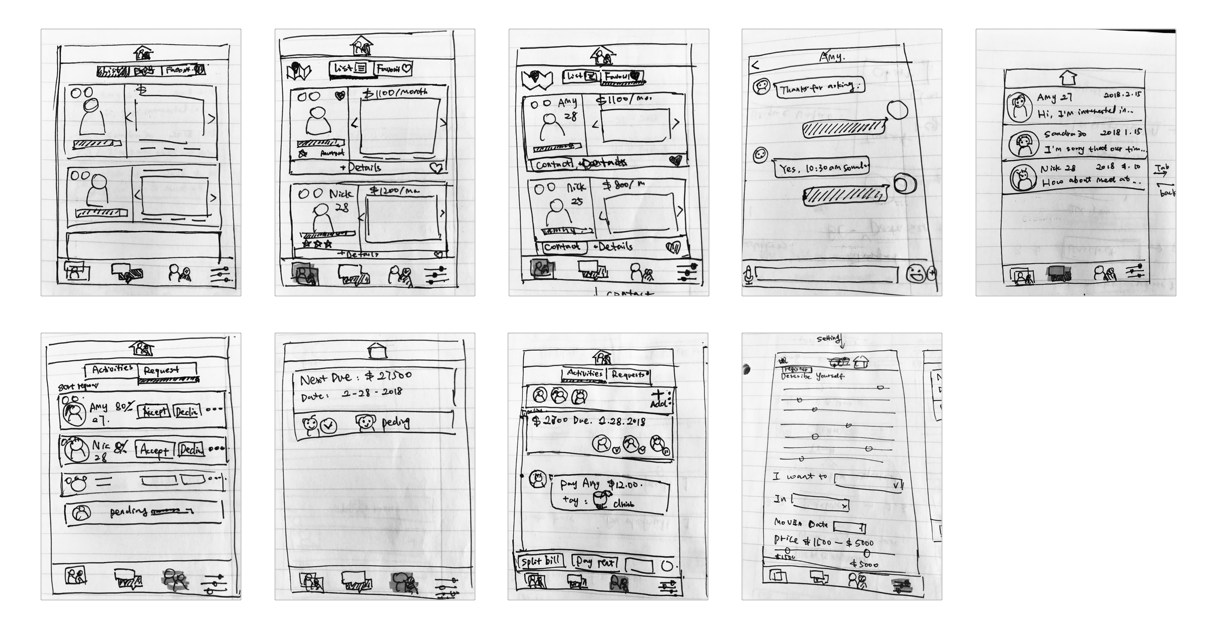 List
Favorit
$
List
Favorit
$1100/month
+Details
Nick
28
$1200/mo
+Details
List
Favorit
Amy
28
$1100/mo.
Contact
+Details
Nick
25
$800/m
Contact
+Details
contact
Amy.
Thanks for asking.
Yes. 10:30am sounds
Amy 27 2018.2.15
Hi, I'm interested in...
Sandra 30 2018 1.15
I'm sorry that our tim...
Nick 28
How about meet at...
Tab
back
Activities Request
Amy 80%
27.
Accept
Declin
Nic 8%
28
Accept
Declin
pending
Next Due : $ 27500
Date: 2-28-2018
peding
Activities Requests
Add
$2800 Due. 2.28.2018
pay Amy $12.00.
for:
Split bill
pay rent
setting
Describe Yourself
I want to
In
MoveIn Date
price $1500 - $5000
$1500
$5000